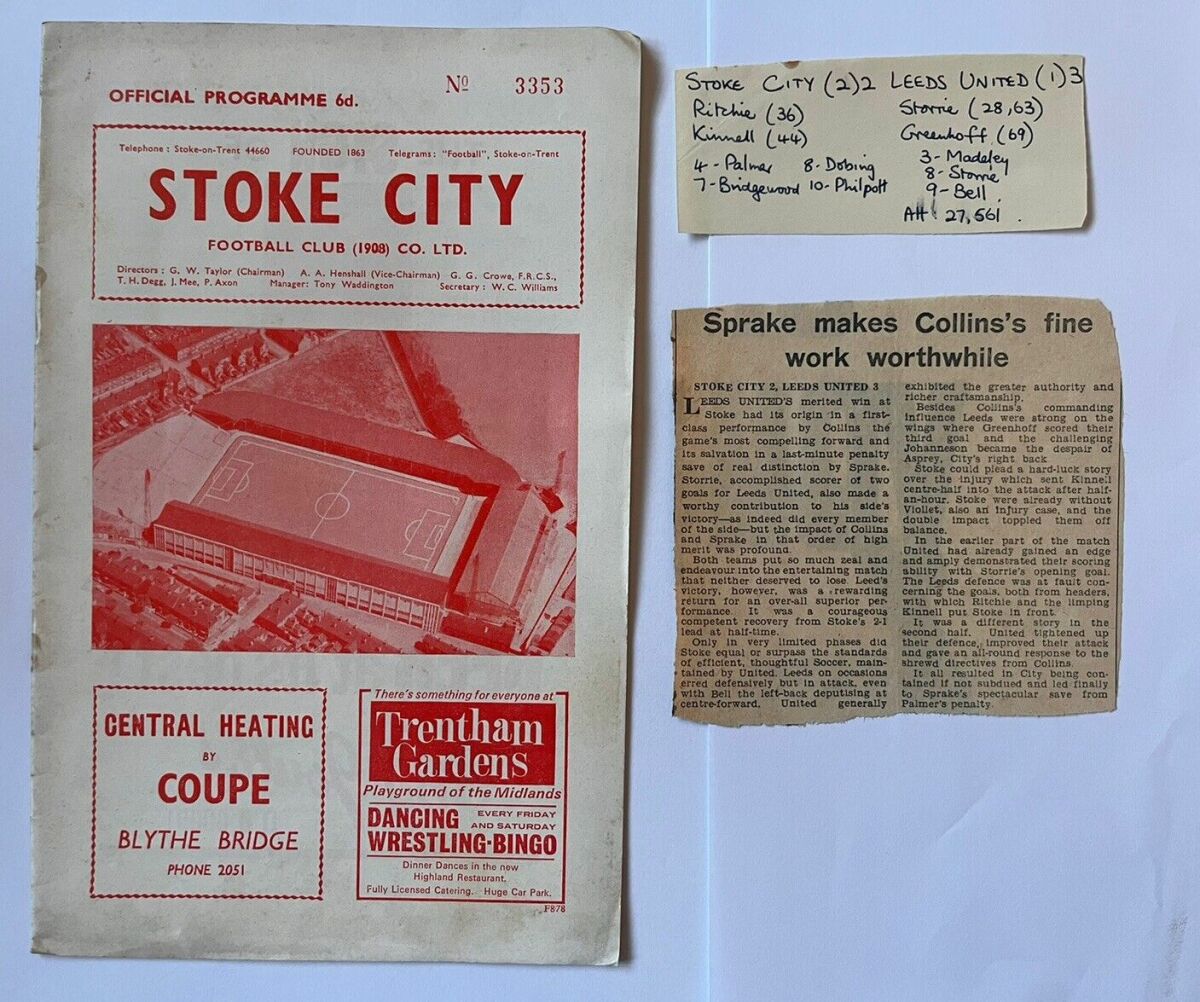 OFFICIAL PROGRAMME 6d.
Nº 3353
Telephone : Stoke-on-Trent 44660 FOUNDED 1863 Telegrams : "Football", Stoke-on-Trent
STOKE CITY
FOOTBALL CLUB (1908) CO. LTD.
Directors : G. W. Taylor (Chairman) A. A. Henshall (Vice-Chairman) G. G. Crowe, F.R.C.S.,
T. H. Degg, J. Mee, P. Axon Manager: Tony Waddington Secretary : W. C. Williams
CENTRAL HEATING
BY
COUPE
BLYTHE BRIDGE
PHONE 2051
There's something for everyone at
Trentham
Gardens
Playground of the Midlands
DANCING EVERY FRIDAY AND SATURDAY
WRESTLING·BINGO
Dinner Dances in the new
Highland Restaurant.
Fully Licensed Catering. Huge Car Park.
F878
STOKE CITY (2)2 LEEDS UNITED (1)3
Ritchie (36) Storrie (28,63)
Kinnell (44) Greenhoff (69)
4 - Palmer 8 - Dobing 3 - Madeley
7 - Bridgewood 10 - Philpott 8 - Storrie
9 - Bell
Att 27,561.
Sprake makes Collins's fine
work worthwhile
STOKE CITY 2, LEEDS UNITED 3
LEEDS UNITED'S merited win at
Stoke had its origin in a first-
class performance by Collins the
game's most compelling forward and
its salvation in a last-minute penalty
save of real distinction by Sprake.
Storrie, accomplished scorer of two
goals for Leeds United, also made a
worthy contribution to his side's
victory—as indeed did every member
of the side—but the impact of Collins
and Sprake in that order of high
merit was profound.
Both teams put so much zeal and
endeavour into the entertaining match
that neither deserved to lose. Leed's
victory, however, was a rewarding
return for an over-all superior per-
formance. It was a courageous
competent recovery from Stoke's 2-1
lead at half-time.
Only in very limited phases did
Stoke equal or surpass the standards
of efficient, thoughtful Soccer, main-
tained by United. Leeds on occasions
erred defensively but in attack, even
with Bell the left-back deputising at
centre-forward, United generally
exhibited the greater authority and
richer craftsmanship.
Besides Collins's commanding
influence Leeds were strong on the
wings where Greenhoff scored their
third goal and the challenging
Johanneson became the despair of
Asprey, City's right back
Stoke could plead a hard-luck story
over the injury which sent Kinnell
centre-half into the attack after half-
an-hour. Stoke were already without
Viollet, also an injury case, and the
double impact toppled them off
balance.
In the earlier part of the match
United had already gained an edge
and amply demonstrated their scoring
ability with Storrie's opening goal.
The Leeds defence was at fault con-
cerning the goals, both from headers,
with which Ritchie and the limping
Kinnell put Stoke in front.
It was a different story in the
second half. United tightened up
their defence, improved their attack
and gave an all-round response to the
shrewd directives from Collins.
It all resulted in City being con-
tained if not subdued and led finally
to Sprake's spectacular save from
Palmer's penalty.